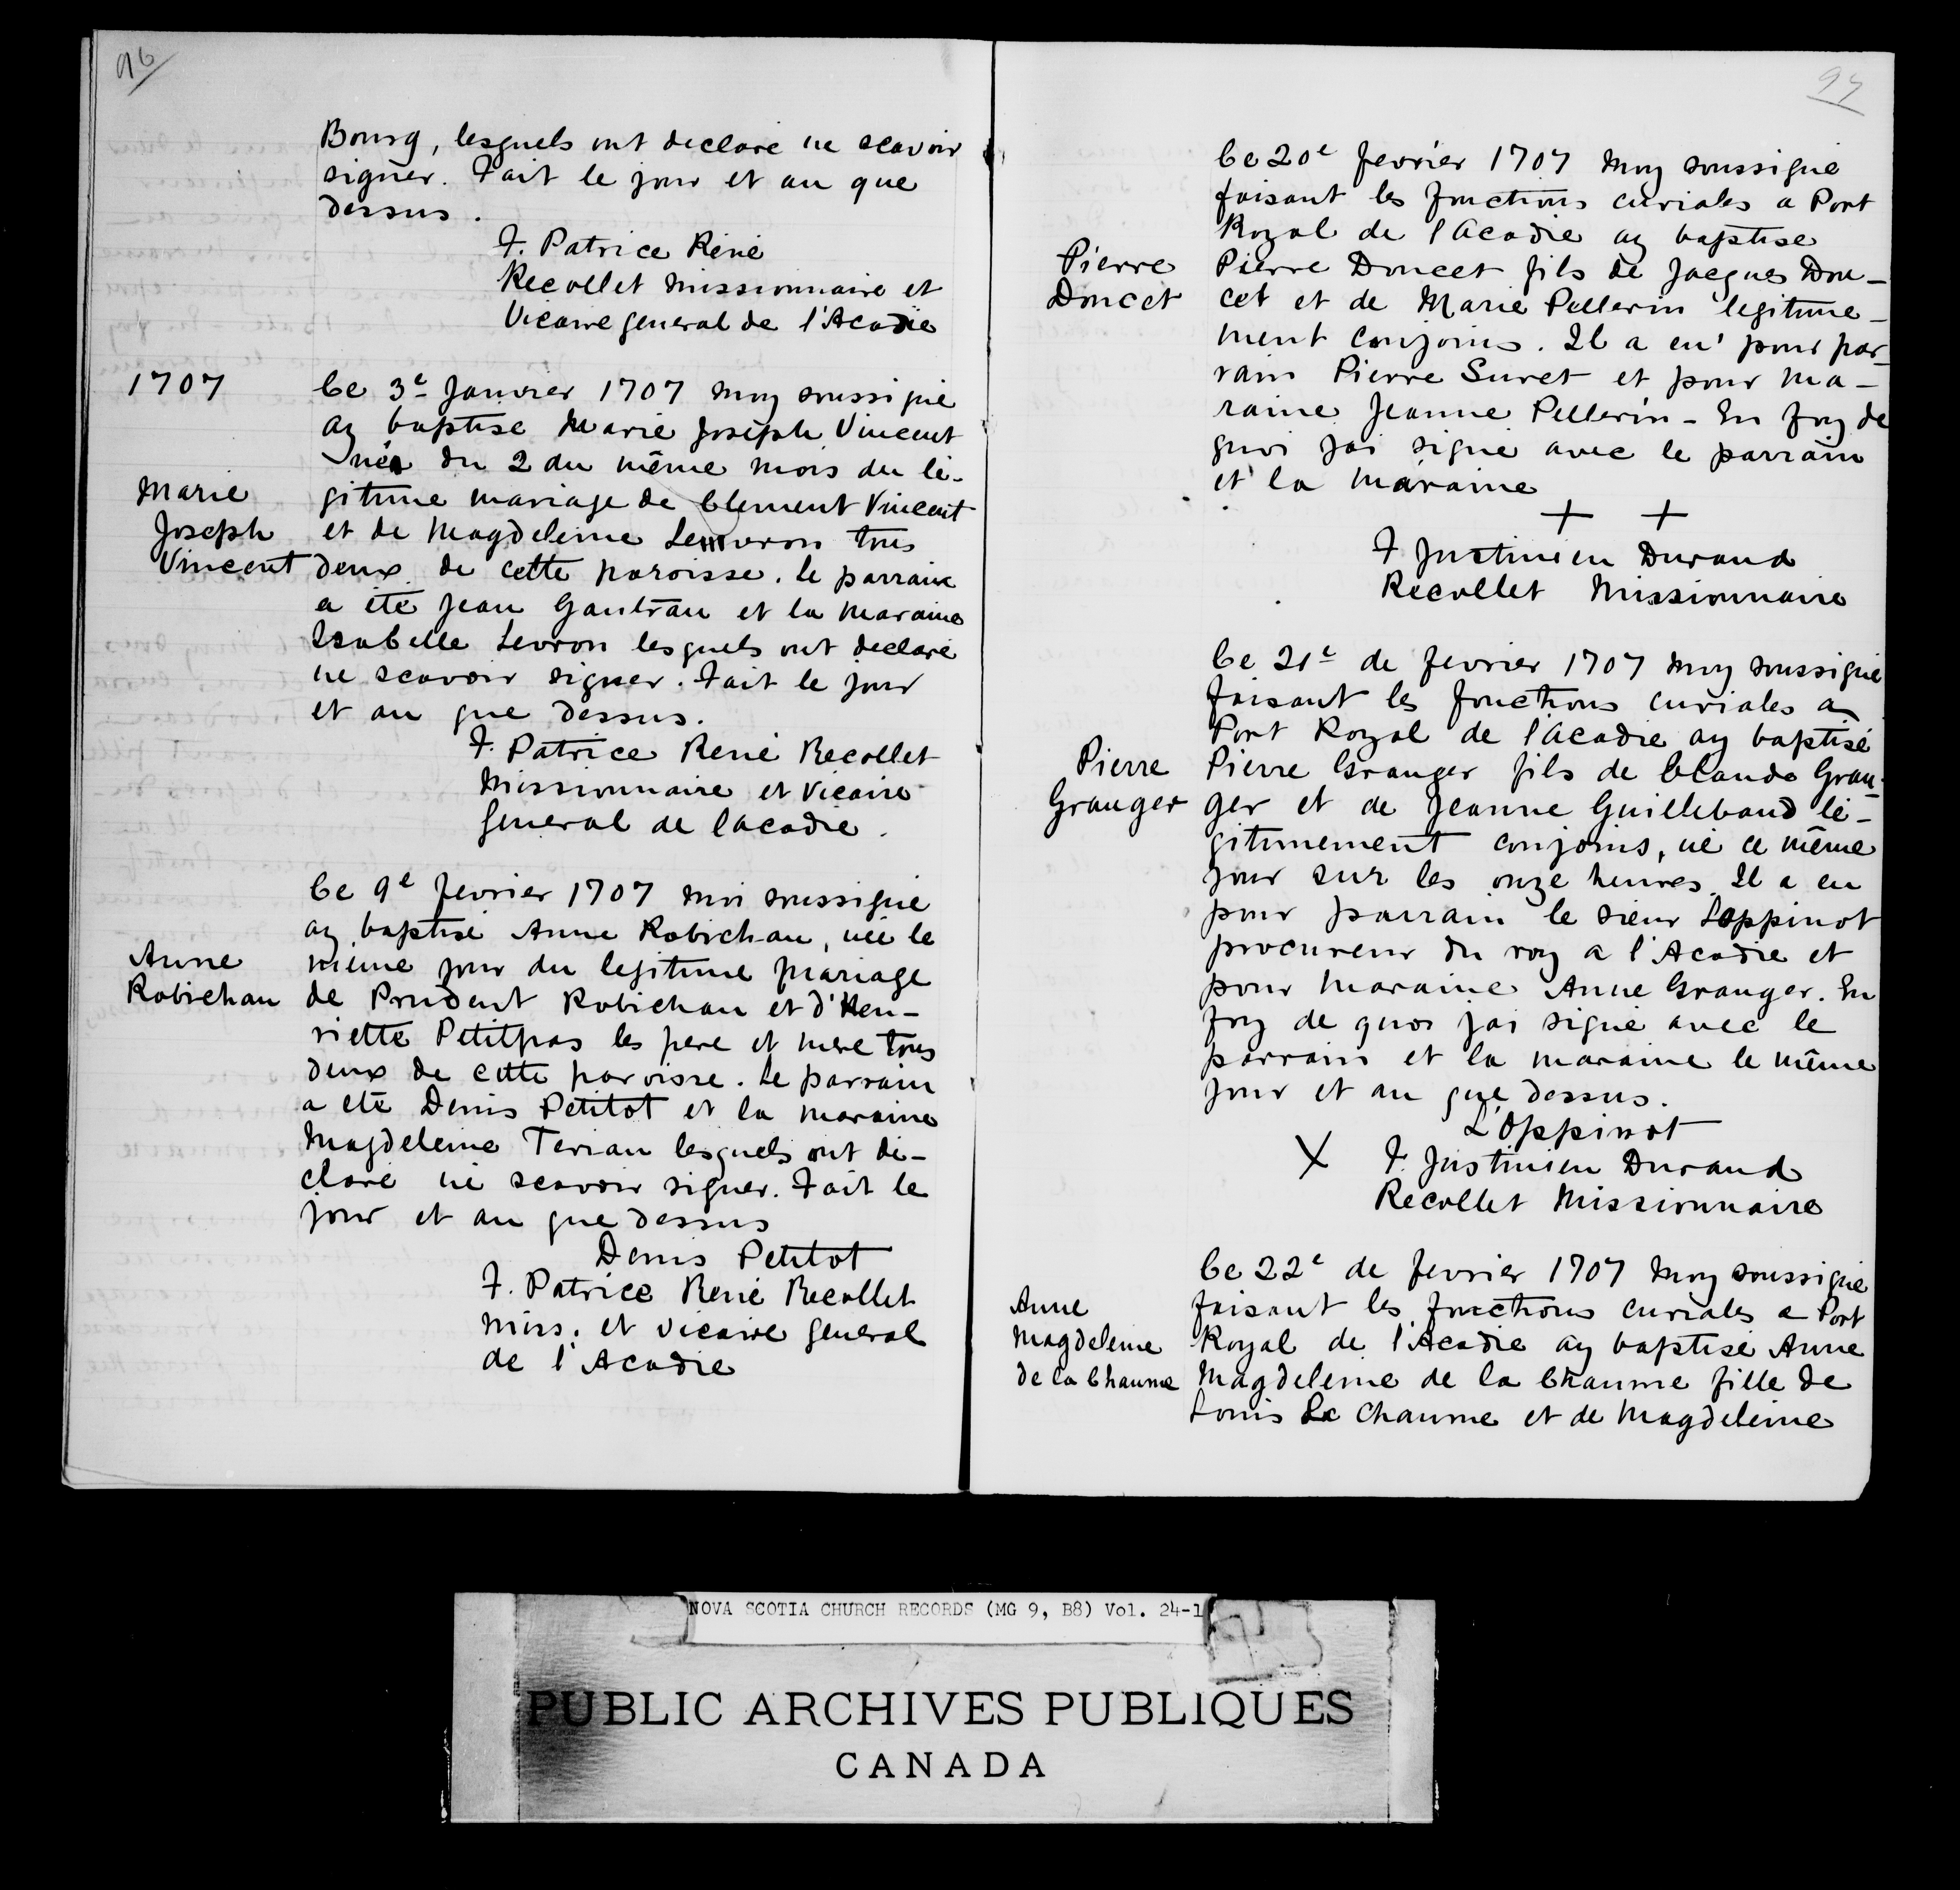 96
Bourg, lesquels ont declaré ne scavoir
signer. Fait le jour et an que
dessus.
F. Patrice René
Recollet missionnaire et
Vicaire general de l'Acadie
1707
Ce 3e Janvier 1707 moy soussigné
ay baptisé Marie Joseph Vincent
née du 2 du même mois du lé-
gitime mariage de Clement Vincent
et de Magdeleine Levron tous
deux de cette paroisse. Le parrain
a été Jean Gautrau et la maraine
Isabelle Levron lesquels ont declaré
ne scavoir signer. Fait le jour
et an que dessus.
Marie
Joseph
Vincent
F. Patrice René Recollet
Missionnaire et Vicaire
General de lacadie.
Ce 9e fevrier 1707 moi soussigné
ay baptisé Anne Robichau, née le
même jour du legitime mariage
de Prudent Robichau et d'Hen-
riette Petitpas les pere et mere tous
deux de cette paroisse. Le parrain
a été Denis Petitot et la maraine
Magdeleine Terian lesquels ont de-
claré né scavoir signer. Fait le
jour et an que dessus
Anne
Robichau
Denis Petitot
F. Patrice René Recollet
miss. et vicaire general
de l'Acadie
97
Ce 20e fevrier 1707 moy soussigné
faisant les fonctions curiales a Port
Royal de l'Acadie ay baptisé
Pierre Doucet fils de Jacques Dou-
cet et de Marie Pellerin legitime-
ment conjoins. Il a eu' pour par-
rain Pierre Suret et pour ma-
raine Jeanne Pellerin - En foy de
quoi jai signé avec le parrain
et la maraine
Pierre
Doucet
+ +
F Justinien Durand
Recollet Missionnaire
Ce 21e de fevrier 1707 moy soussigné
faisant les fonctions curiales a
Port Royal de l'Acadie ay baptisé
Pierre Granger fils de Claude Gran-
ger et de Jeanne Guillebaud lé-
gitimement conjoins, né ce même
jour sur les onze heures. Il a eu
pour parrain le sieur Loppinot
procureur du roy a l'Acadie et
pour maraine Anne Granger. En
foy de quoi jai signé avec le
parrain et la maraine le même
jour et an que dessus.
Pierre
Granger
L'Oppinot
X F. Justinien Durand
Recollet Missionnaire
Ce 22e de fevrier 1707 moy soussigné
faisant les fonctions curiales a Port
Royal de l'Acadie ay baptisé Anne
Magdeleine de la Chaume fille de
Louis La Chaume et de Magdeleine
Anne
Magdeleine
de la Chaume
NOVA SCOTIA CHURCH RECORDS (MG 9, B8) Vol. 24-1
PUBLIC ARCHIVES PUBLIQUES
CANADA